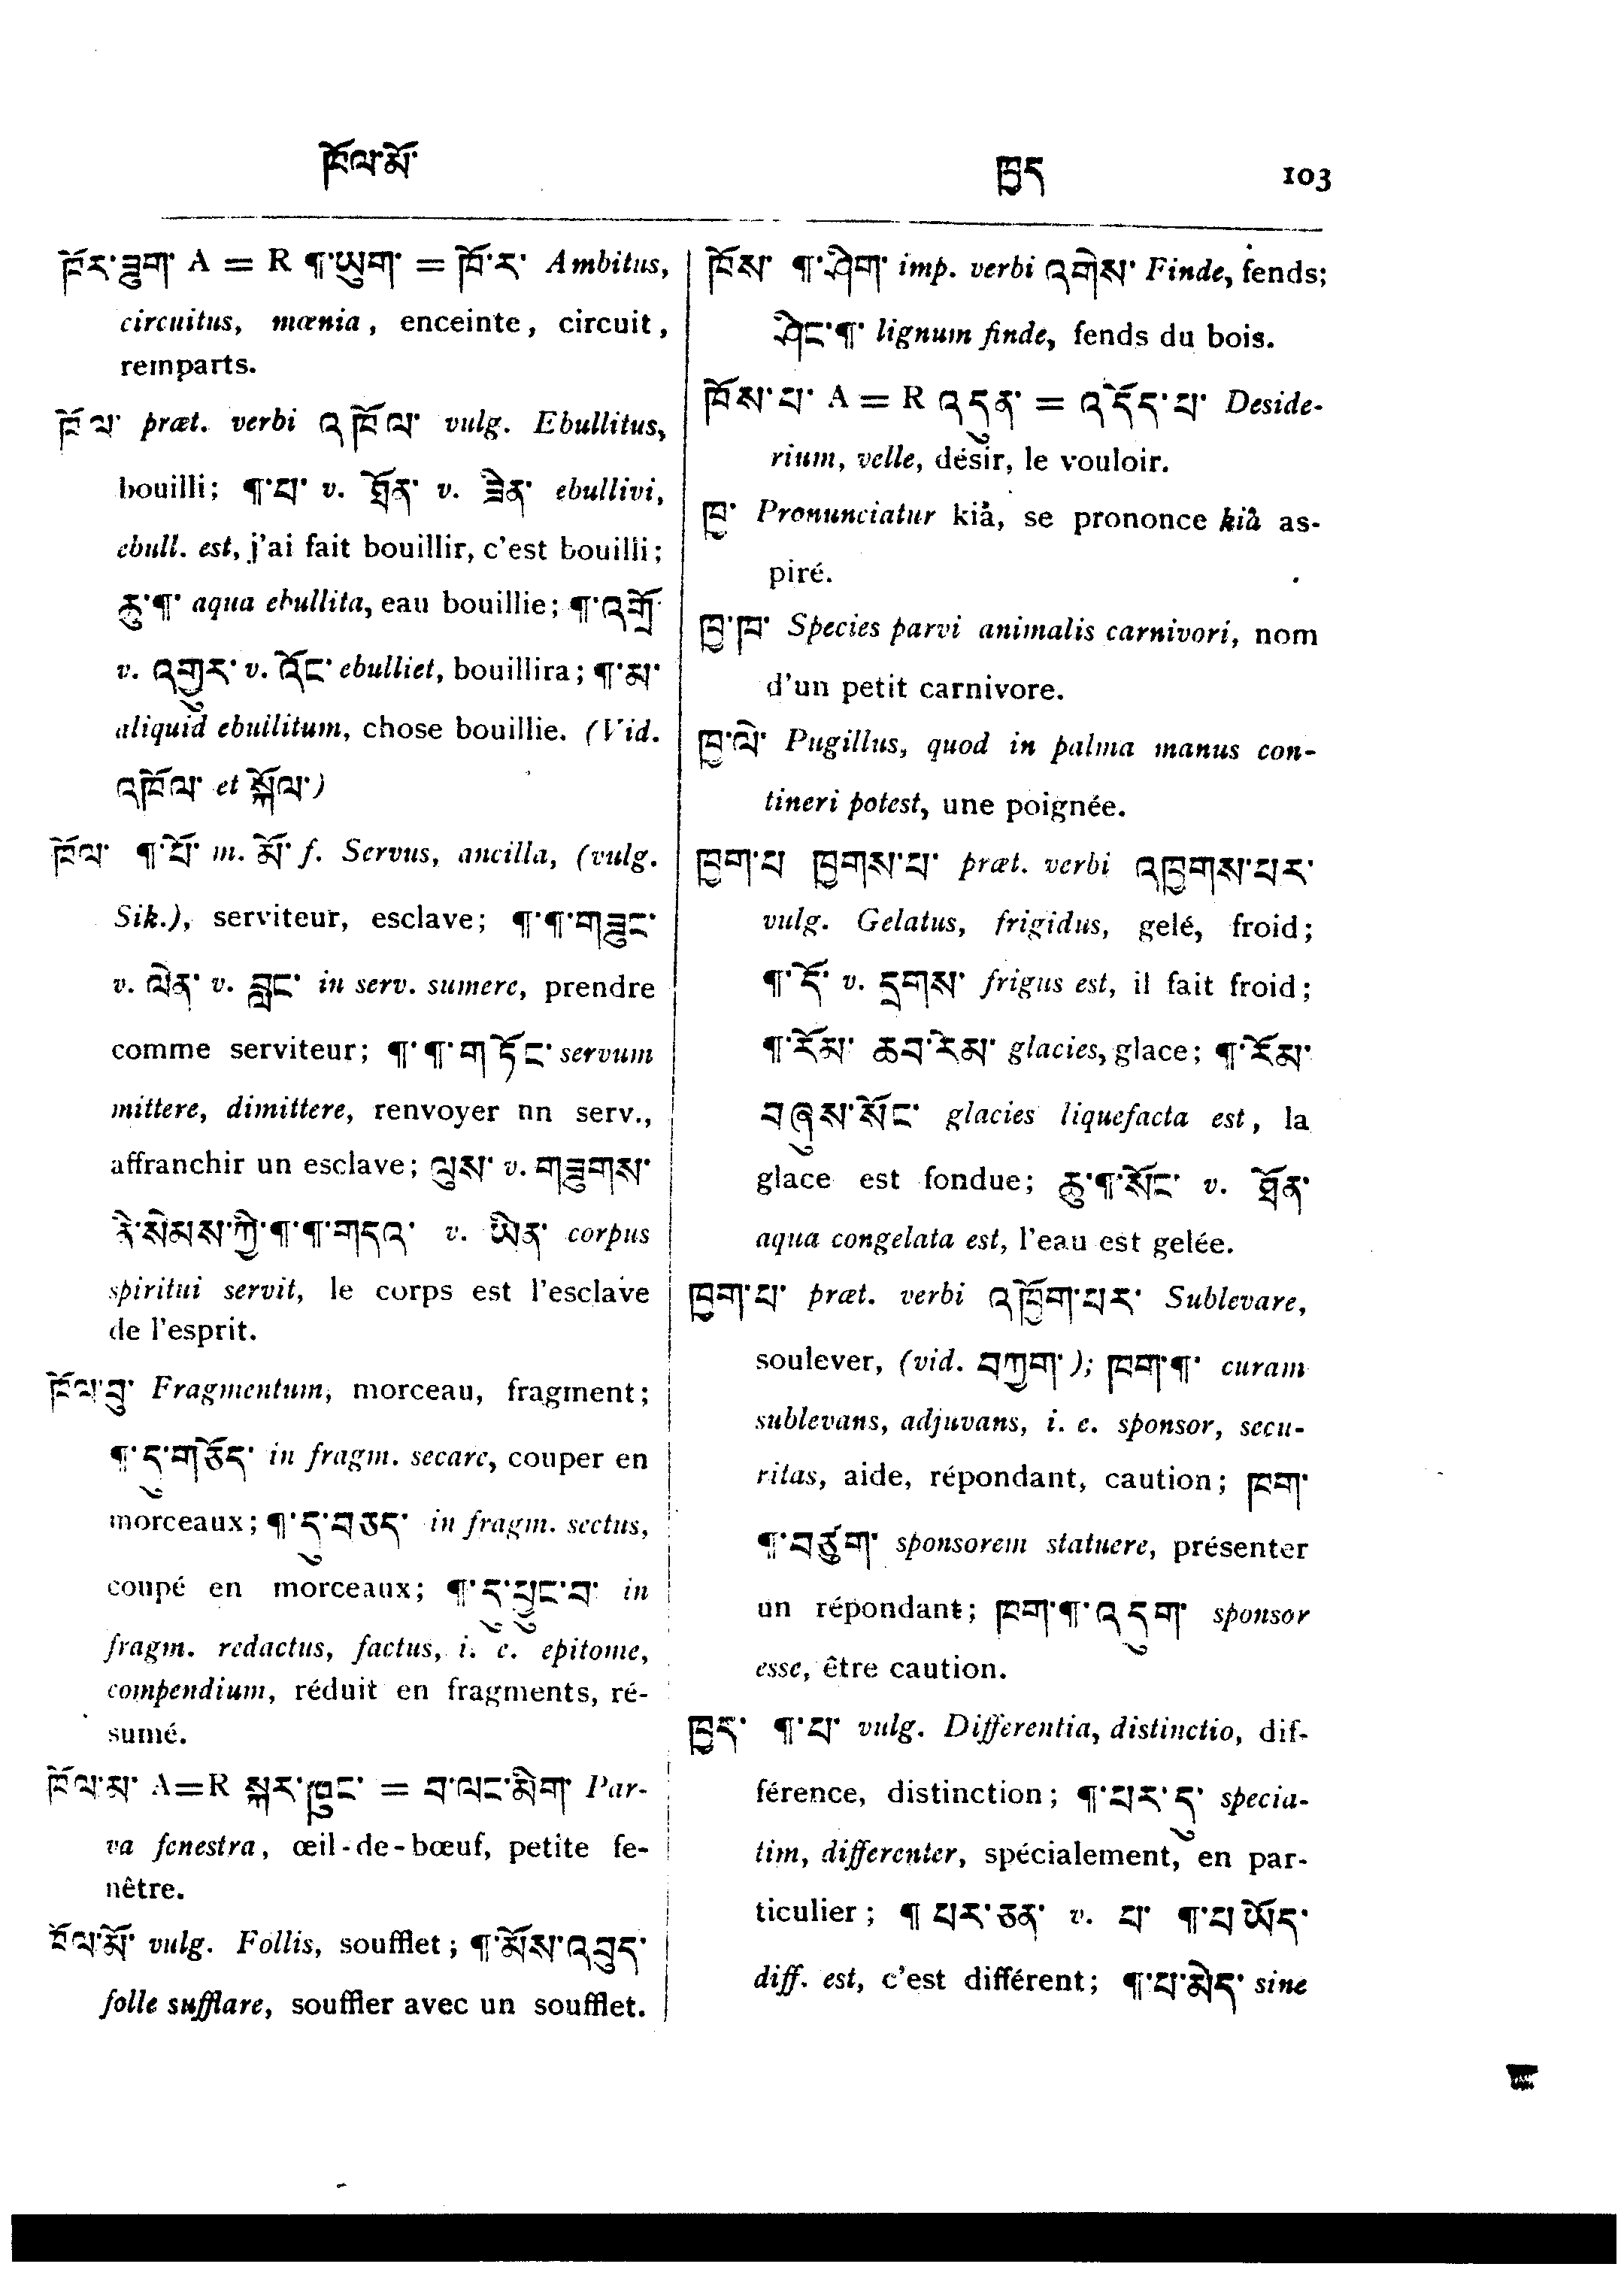 ཁོལ་མོ་
ཁྱད
103
ཁོར་ཟུག་ A = R ¶་ཡུག་ = ཁོ་ར་ Ambitus,
circuitus, mœnia, enceinte, circuit,
remparts.
ཁོལ་ præt. verbi འཁོལ་ vulg. Ebullitus,
bouilli; ¶་པ་ v. ཐོན་ v. ཟིན་ ebullivi,
ebull. est, j'ai fait bouillir, c'est bouilli;
ཆུ་¶་ aqua ebullita, eau bouillie; ¶་འགྲོ་
v. འགྱུར་ v. འོང་ ebulliet, bouillira; ¶་མ་
aliquid ebullitum, chose bouillie. (Vid.
འཁོལ་ et སྐོལ་)
ཁོལ་ ¶་པོ་ m. མོ་ f. Servus, ancilla, (vulg.
Sik.), serviteur, esclave; ¶་¶་གཟུང་
v. ལེན་ v. བླང་ in serv. sumere, prendre
comme serviteur; ¶་¶་གཏོང་ servum
mittere, dimittere, renvoyer nn serv.,
affranchir un esclave; ལུས་ v. གཟུགས་
ནི་སེམས་ཀྱི་¶་¶་གདའ་ v. ཡིན་ corpus
spiritui servit, le corps est l'esclave
de l'esprit.
ཁོལ་བུ་ Fragmentum, morceau, fragment;
¶་དུ་གཅོད་ in fragm. secare, couper en
morceaux; ¶་དུ་བཅད་ in fragm. sectus,
coupé en morceaux; ¶་དུ་ཕྱུང་བ་ in
fragm. redactus, factus, i. e. epitome,
compendium, réduit en fragments, ré-
sumé.
ཁོལ་མ་ A=R སྐར་ཁུང་ = བ་ལང་མིག་ Par-
va fenestra, œil-de-bœuf, petite fe-
nêtre.
ཁོལ་མོ་ vulg. Follis, soufflet; ¶་མོས་འབུད་
folle sufflare, souffler avec un soufflet.
ཁོས་ ¶་ཤིག་ imp. verbi འགེས་ Finde, fends;
ཤིང་¶་ lignum finde, fends du bois.
ཁོས་པ་ A = R འདུན་ = འདོད་པ་ Deside-
rium, velle, désir, le vouloir.
ཁྱ་ Pronunciatur kià, se prononce kià as-
piré.
ཁྱ་ཁ་ Species parvi animalis carnivori, nom
d'un petit carnivore.
ཁྱ་ལེ་ Pugillus, quod in palma manus con-
tineri potest, une poignée.
ཁྱག་པ ཁྱགས་པ་ præt. verbi འཁྱགས་པར་
vulg. Gelatus, frigidus, gelé, froid;
¶་དོ་ v. དྲགས་ frigus est, il fait froid;
¶་རོམ་ ཆབ་རིམ་ glacies, glace; ¶་རོམ་
བཞུས་སོང་ glacies liquefacta est, la
glace est fondue; ཆུ་¶་སོང་ v. ཐོན་
aqua congelata est, l'eau est gelée.
ཁྱག་པ་ præt. verbi འཁྱོག་པར་ Sublevare,
soulever, (vid. བཀྱག་); ཁག་¶་ curam
sublevans, adjuvans, i. e. sponsor, secu-
ritas, aide, répondant, caution; ཁག་
¶་བཙུག་ sponsorem statuere, présenter
un répondant; ཁག་¶་འདུག་ sponsor
esse, être caution.
ཁྱད་ ¶་པ་ vulg. Differentia, distinctio, dif-
férence, distinction; ¶་པར་དུ་ specia-
tim, differenter, spécialement, en par-
ticulier; ¶ པར་ཅན་ v. པ་ ¶་པ་ཡོད་
diff. est, c'est différent; ¶་པ་མེད་ sine